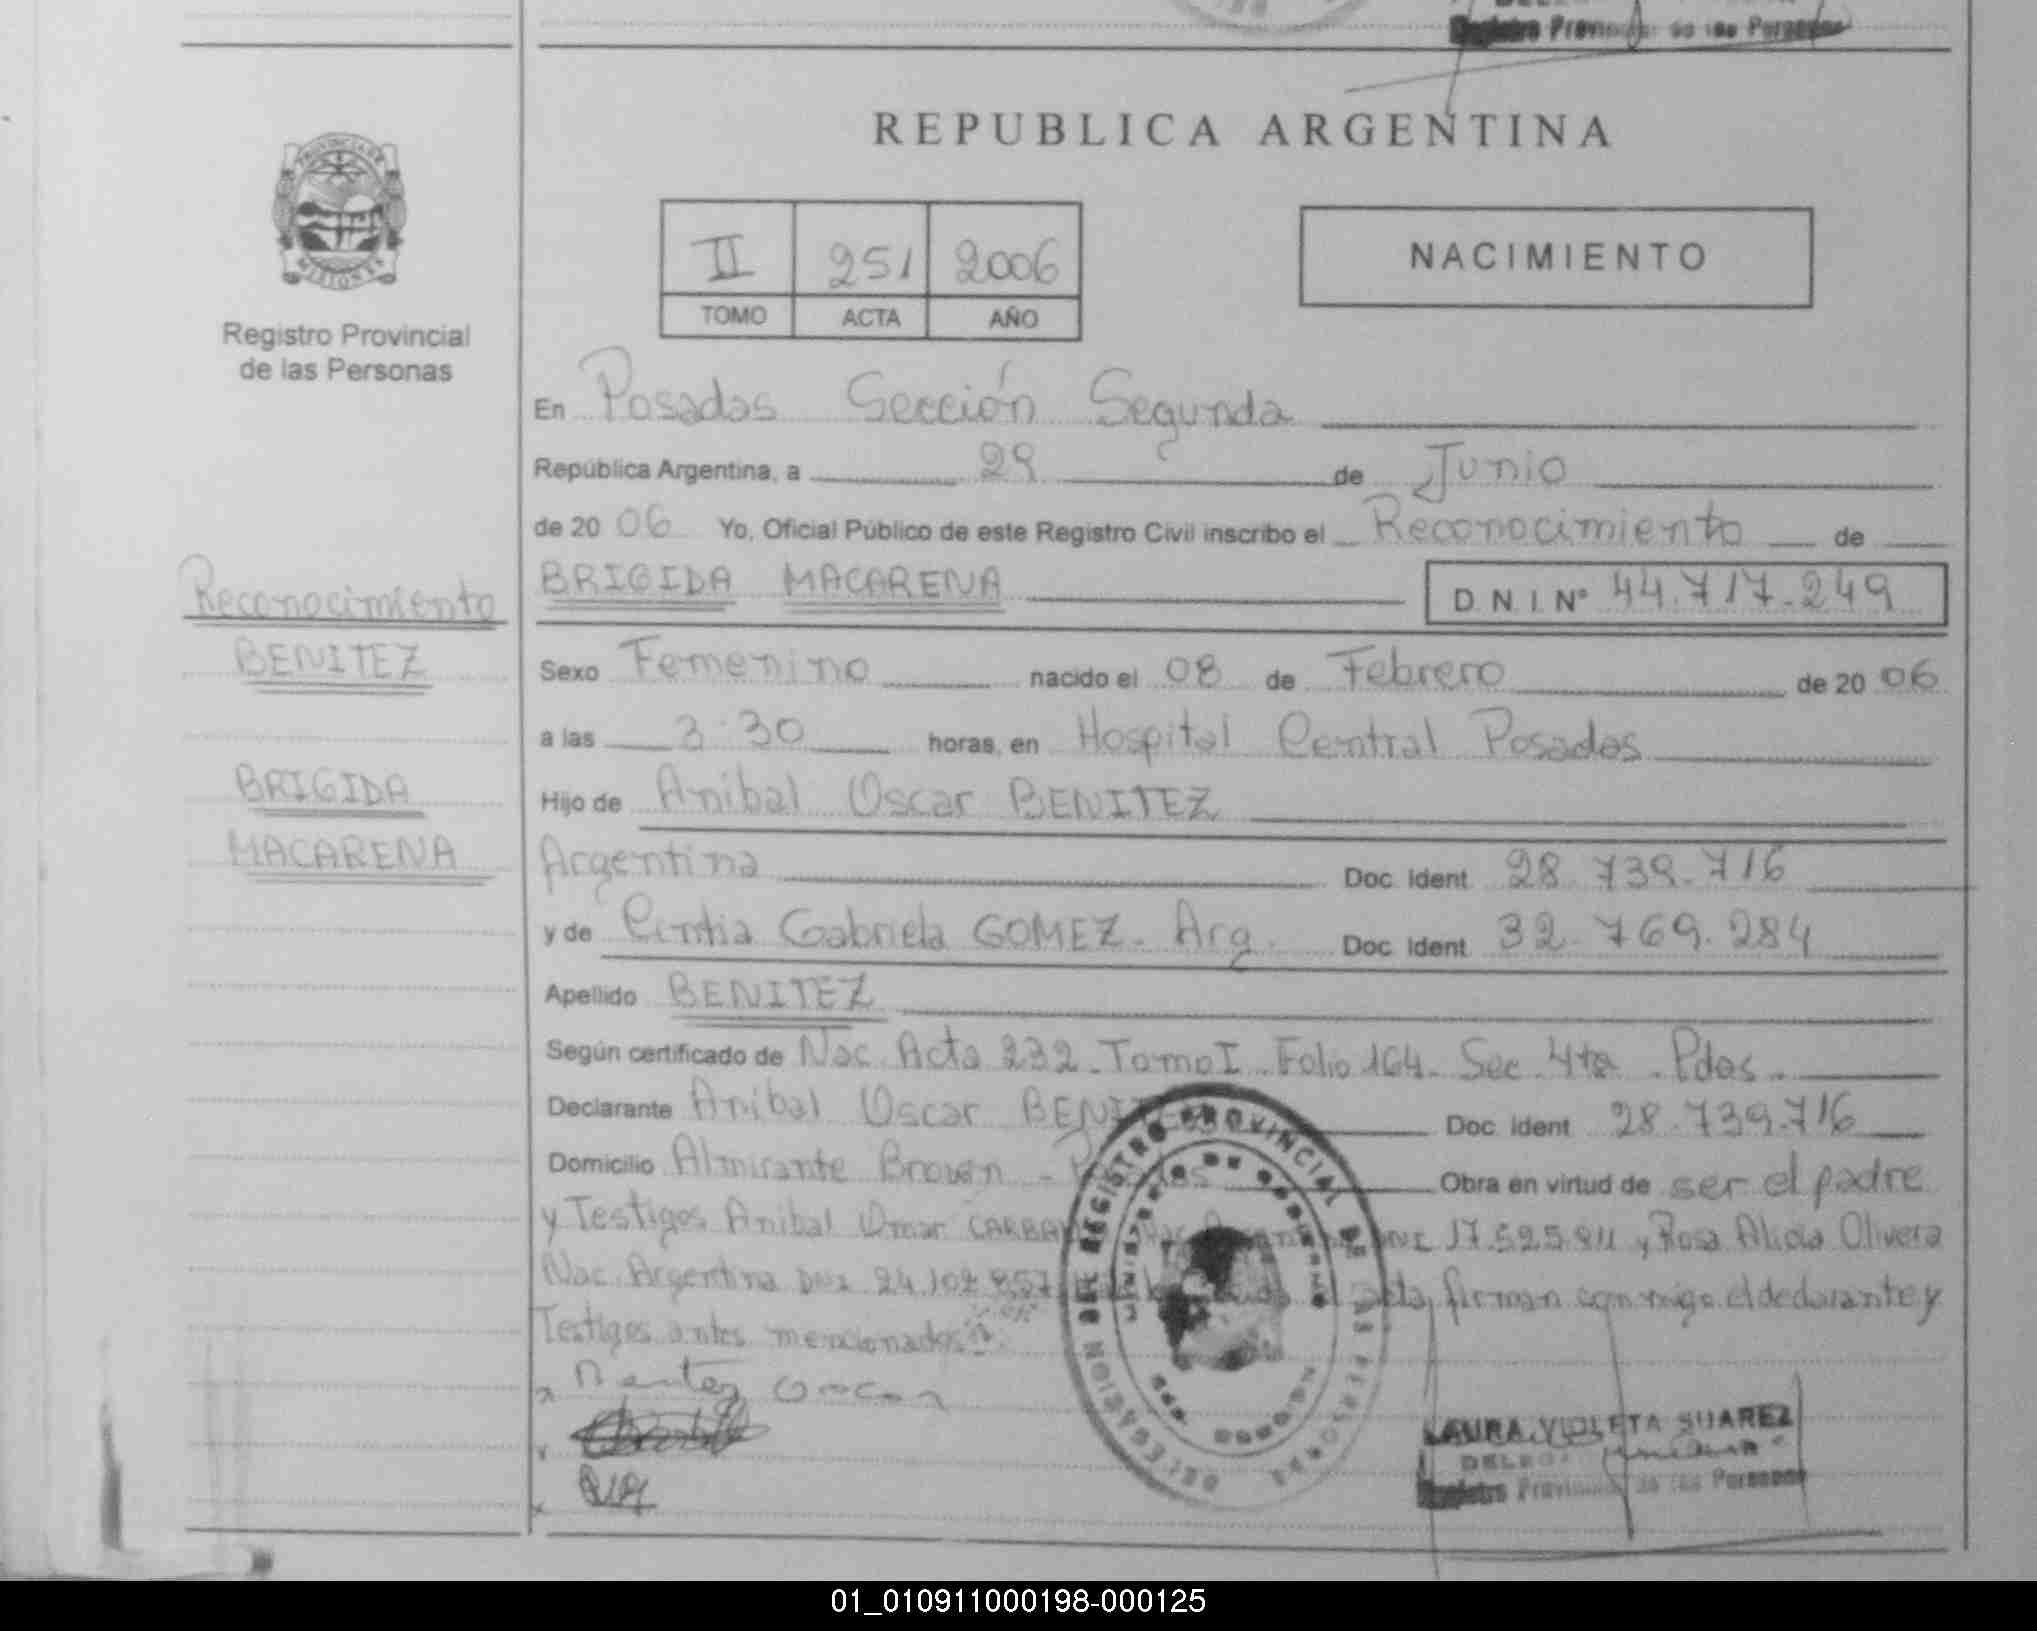 Registro Provincial de las Personas
REPUBLICA ARGENTINA
PROVINCIA DE
MISIONES
Registro Provincial
de las Personas
II 251 2006
TOMO ACTA AÑO
NACIMIENTO
En Posadas Sección Segunda
República Argentina, a 29 de Junio
de 20 06 Yo, Oficial Público de este Registro Civil inscribo el Reconocimiento de
BRIGIDA MACARENA D.N.I. Nº 44.717.249
Reconocimiento
BENITEZ
BRIGIDA
MACARENA
Sexo Femenino nacido el 08 de Febrero de 20 06
a las 3:30 horas, en Hospital Central Posadas
Hijo de Anibal Oscar BENITEZ
Argentina Doc. Ident. 28.739.716
y de Cintia Gabriela GOMEZ - Arg. Doc. Ident. 32.769.284
Apellido BENITEZ
Según certificado de Nac. Acta 232 - Tomo I - Folio 164 - Sec. 4ta - Pdas.
Declarante Anibal Oscar BENITEZ Doc. Ident. 28.739.716
Domicilio Almirante Brown - Obra en virtud de ser el padre
y Testigos Anibal Omar Nac. DNI 17.525.911 y Rosa Alicia Olivera
Nac. Argentina DNI 24.102.857 acta, firman conmigo el declarante y
Testigos antes mencionados
x Benitez Oscar
x
x
DELEGACION DEL REGISTRO PROVINCIAL DE LAS PERSONAS
LAURA VIOLETA SUAREZ
Registro Provincial de las Personas
01_010911000198-000125